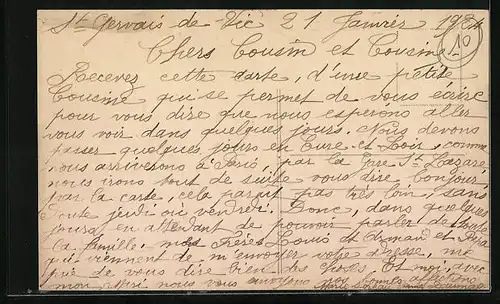 St Gervais de Vic 21 Janvier 192
10
Chers Cousin et Cousine
Recevez cette carte, d'une petite
Cousine qui se permet de vous écrire
pour vous dire que nous esperons aller
vous voir dans quelques jours. Nous devons
passer quelques jours en Eure et Loir, comme
nous arriverons a Paris, par la Gare St Lazare
nous irons tout de suite vous dire bonjour,
par la carte, cela parait pas très loin, sans
doute jeudi ou vendredi. Donc, dans quelques
jours, en attendant de pouvoir parler de toute
la famille, mes Frères Louis et Armand et
qui viennent de m'envoyer votre adresse, me
prie de vous dire bien des choses. Et moi, avec
mon mari nous vous envoyons